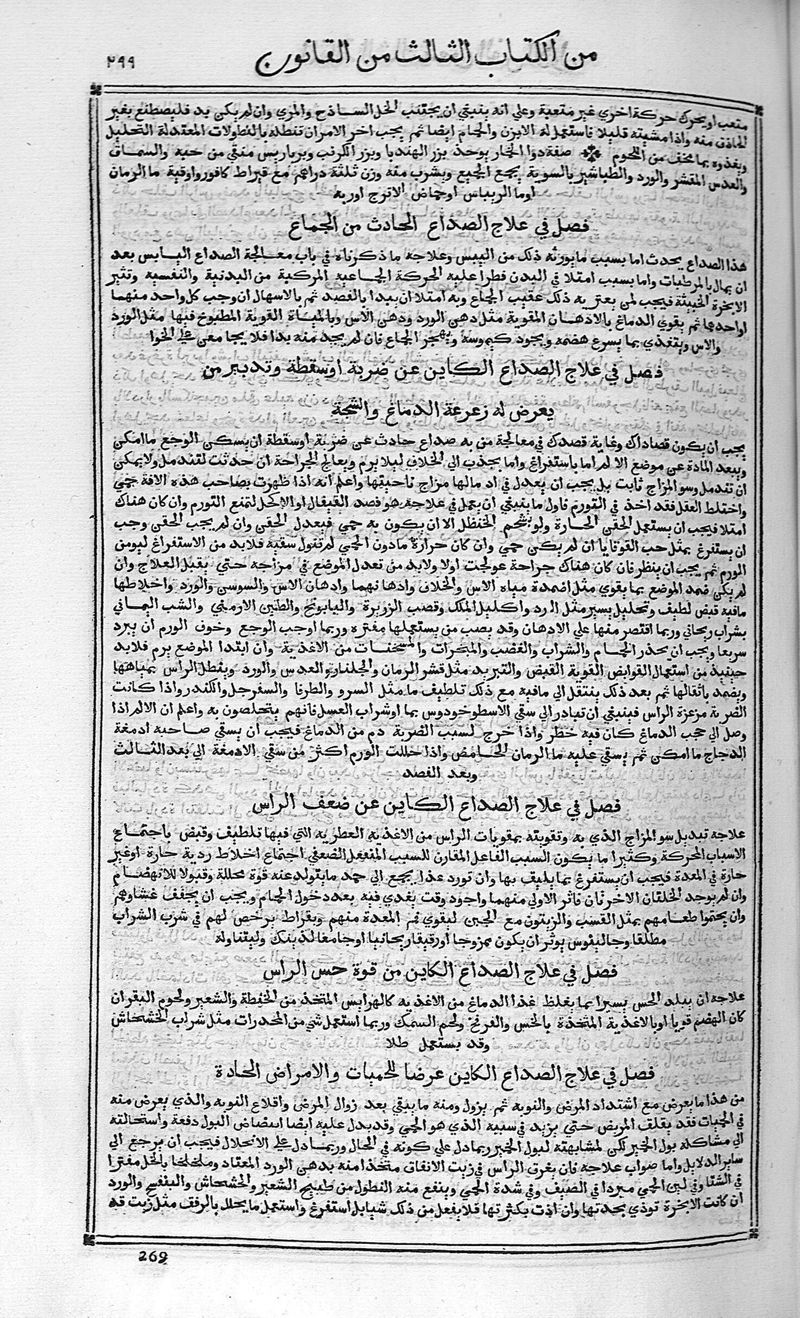 من الكتاب الثالث من القانون
٢٩٩
متعب او يحرك حركة اخري غير متعبة وعلي انه ينبغي ان يجتنب الخل الساذج والمري وان لم يكن بد فليصطنع بغير
الحاذق منه واذا مشيته قليلا فاستعمل له الابزن والحمام ايضا ثم يجب اخر الامر ان تنطله بالنطولات المعتدلة التحليل
ويغذوه بما يخف من اللحوم صفة دوا الخمار يوخذ بزر الهندبا وبزر الكرنب وبرباريس منقي من حبه والسماق
والعدس المقشر والورد والطباشير بالسوية يجمع الجميع ويشرب منه وزن ثلثة دراهم مع قيراط كافور واوقية ما الرمان
او ما الريباس او حماض الاترج او ربه
فصل في علاج الصداع الحادث من الجماع
هذا الصداع يحدث اما بسبب ما يورثه ذلك من اليبس وعلاجه ما ذكرناه في باب معالجة الصداع اليابس بعد
ان يمال بالمرطبات واما بسبب امتلا في البدن فطرا عليه الحركة الجماعية المركبة من البدنية والنفسية وتثير
الابخرة الخبيثة فيجب لمن يعتريه ذلك عقيب الجماع وبه امتلا ان يبدا بالفصد ثم بالاسهال ان وجب كل واحد منهما
او احدهما ثم يقوي الدماغ بالادهان المقوية مثل دهن الورد ودهن الاس وبالمياه القوية المطبوخ فيها مثل الورد
والاس ويتغذي بما يسرع هضمه ويجود كيموسه ويهجر الجماع فان لم يجد منه بدا فلا يجامعن علي الخوا
فصل في علاج الصداع الكاين عن ضربة او سقطة وتدبير من
يعرض له زعزعة الدماغ والشجة
يجب ان يكون قصاراك وغاية قصدك في معالجة من به صداع حادث عن ضربة او سقطة ان يسكن الوجع ما امكن
ويبعد المادة عن موضع الالم اما باستفراغ واما بجذب الي الخلاف ليلا يرم ويعالج الجراحة ان حدثت لتندمل ولا يمكن
ان تندمل وسو المزاج ثابت بل يجب ان يعدل في ادمالها مزاج ناحيتها واعلم انه اذا ظهرت بصاحب هذه الافة حمي
واختلط العقل فقد اخذ في التورم فاول ما ينبغي ان يعمل في علاجه هو فصد القيفال او الاكحل لتمنع التورم وان كان هناك
امتلا فيجب ان يستعمل الحقن الحارة ولو بشحم الحنظل الا ان يكون به حمي فيعدل الحقن وان لم يجب الحقن وجب
ان يستفرغ بمثل حب القوقايا ان لم يكن حمي وان كان حرارة ما دون الحمي لم تقول سقيه فلا بد من الاستفراغ ليومن
الورم ثم يجب ان ينظر فان كان هناك جراحة عولجت اولا ولا بد من تعدل الموضع في مزاجه حتي يقبل العلاج وان
لم يكن ضمد الموضع بما يقوي مثل اضمدة مياه الاس والخلاف وادهانهما وادهان الاس والسوسن والورد واخلاطها
ما فيه قبض لطيف وتحليل يسير مثل الورد واكليل الملك وقصب الزريرة والبابونج والطين الارمني والشب اليماني
بشراب ريحاني وربما اقتصر منها علي الادهان وقد يصب من يستعملها مفتره وربما اوجب الوجع وخوف الورم ان يبرد
سريعا ويجب ان يحذر الحمام والشراب والغضب والمبخرات والمسخنات من الاغذية وان ابتدا الموضع يرم فلا بد
حينيذ من استعمال القوابض القوية القبض والتبريد مثل قشر الرمان والجلنار والعدس والورد وينطل الراس بمياهها
ويضمد باثقالها ثم بعد ذلك ينتقل الي ما فيه مع ذلك تلطيف ما مثل السرو والطرفا والسفرجل والكندر واذا كانت
الضربة مزعزعة الراس فينبغي ان تبادر الي سقي الاسطوخودوس بما او شراب العسل فانهم يتخلصون به واعلم ان الالم اذا
وصل الي حجب الدماغ كان فيه خطر واذا خرج لسبب الضربة دم من الدماغ فيجب ان يسقي صاحبه ادمغة
الدجاج ما امكن ثم يسقي عليه ما الرمان الحامض واذا حللت الورم اكثر من سقي الادمغة الي بعد الثالث
وبعد الفصد
فصل في علاج الصداع الكاين عن ضعف الراس
علاجه تبديل سو المزاج الذي به وتقويته بمقويات الراس من الاغذية العطرية التي فيها تلطيف وقبض باجتماع
الاسباب المحركة وكثيرا ما يكون السبب الفاعل المقارن للسبب المنفعل الضعفي اجتماع اخلاط ردية حارة او غير
حارة في المعدة فيجب ان يستفرغ بما يليق بها وان تورد غذا يجمع الي حمد ما يتولد عنه قوة محللة وقبولا للانهضام
وان لم يوجد الخلتان الاخرتان فاثر الاولي منهما واجود وقت يغدي فيه بعد دخول الحمام ويجب ان يخفف عشاوهم
وان يختموا طعامهم بمثل القسب والزيتون مع الخبز ليقوي فم المعدة منهم وبقراط يرخص لهم في شرب الشراب
مطلقا وجالينوس يوثر ان يكون ممزوجا او رقيقا ريحانيا او جامعا لذينك وليتناوله
فصل في علاج الصداع الكاين من قوة حس الراس
علاجه ان يبلد الحس يسيرا بما يغلظ غذا الدماغ من الاغذية كالهرايس المتخذ من الحنطة والشعير ولحوم البقر ان
كان الهضم قويا او بالاغذية المتخذة بالخس والفرفخ ولحم السمك وربما استعمل شي من المخدرات مثل شراب الخشخاش
وقد يستعمل طلا
فصل في علاج الصداع الكاين عرضا للحميات والامراض الحادة
من هذا ما يعرض مع اشتداد المرض والنوبة ثم يزول ومنه ما يبقي بعد زوال المرض واقلاع النوبة والذي يعرض منه
في الحميات فقد يقلق المريض حتي يزيد في سببه الذي هو الحمي وقد يدل عليه ايضا ابيضاض البول دفعة واستحالته
الي مشاكلة بول الحمير لكن لمشابهته لبول الحمير ربما دل علي كونه في الحال وربما دل علي الانحلال فيجب ان يرجع الي
ساير الدلايل واما صواب علاجه فان يغرق الراس في زيت الانفاق متخذا منه بدهن الورد المعتاد ومخلخا بالخل مفترا
في الشتا وفي لين الحمي مبردا في الصيف وفي شدة الحمي وينفع منه النطول من طبيخ الشعير والخشخاش والبنفسج والورد
ان كانت الابخرة توذي بحدتها وان اذت بكثرتها فلا يفعل من ذلك شيا بل استفرغ واستعمل ما يحلل بالرفق مثل زيت قد
269